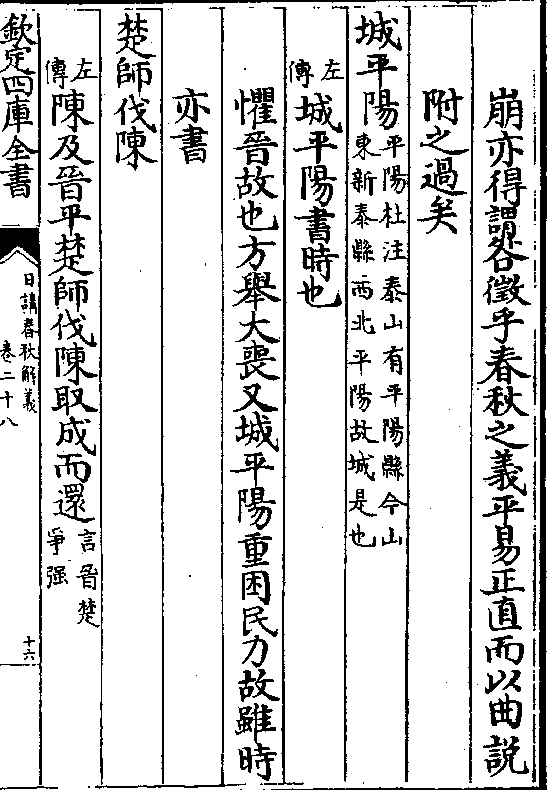 崩亦得謂咎徵乎春秋之義平易正直而以曲說
附之過矣
城平陽平陽杜注泰山有平陽縣今山
東新泰縣西北平陽故城是也
左傳城平陽書時也
懼晉故也方舉大喪又城平陽重困民力故雖時
亦書
楚師伐陳
左傳陳及晉平楚師伐陳取成而還言晉楚
爭强
欽定四庫全書
日講春秋解義
卷二十八
十六